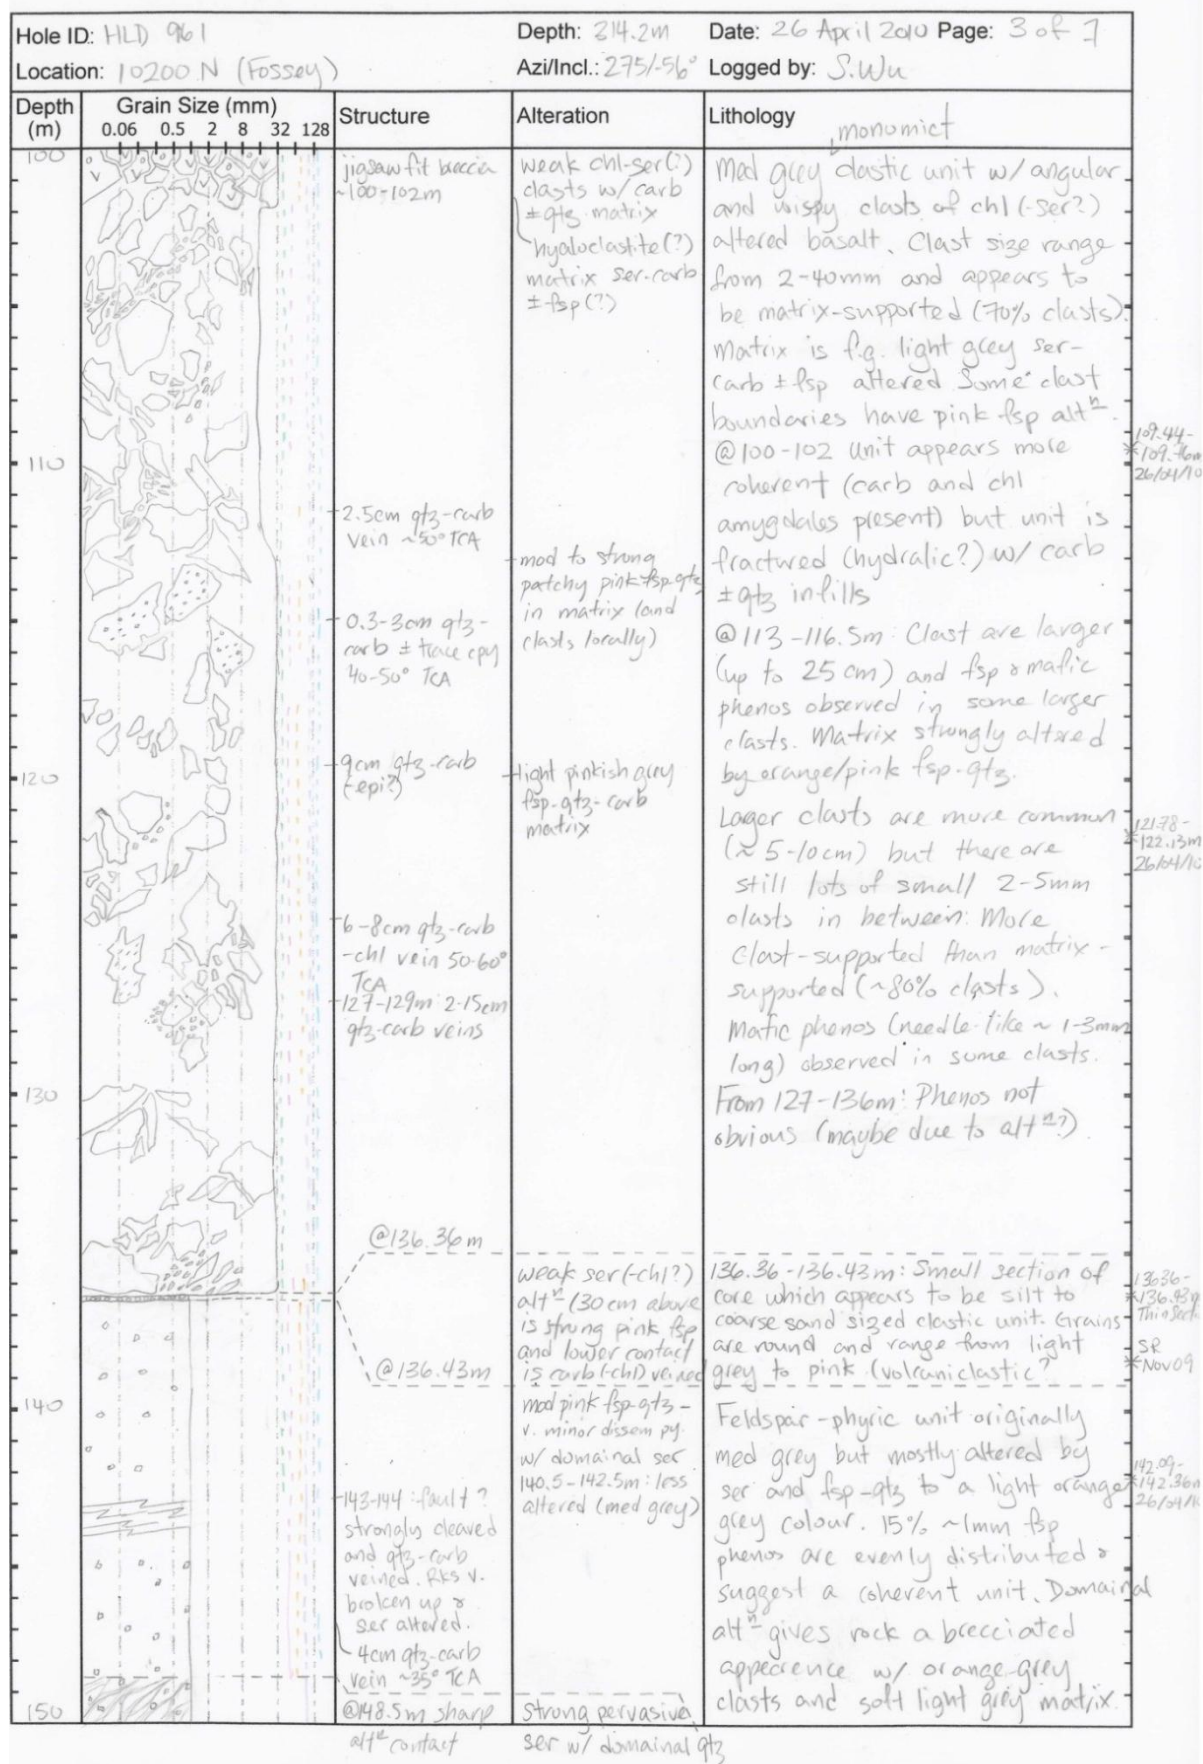 Hole ID: HLD 961
Depth: 314.2m
Date: 26 April 2010 Page: 3 of 7
Location: 10200 N (Fossey)
Azi/Incl.: 275/-56°
Logged by: S.Wu
Depth (m)
Grain Size (mm)
0.06 0.5 2 8 32 128
Structure
Alteration
Lithology
monomict
100
110
120
130
140
150
jigsaw fit breccia
~100-102m
2.5cm qtz-carb
vein ~50° TCA
0.3-3cm qtz-
carb ± trace cpy
40-50° TCA
9cm qtz-carb
(-epi?)
6-8cm qtz-carb
-chl vein 50-60°
TCA
127-129m: 2-15cm
qtz-carb veins
@136.36m
@136.43m
143-144: fault?
strongly cleaved
and qtz-carb
veined. Rks v.
broken up &
ser altered.
4cm qtz-carb
vein ~35° TCA
@148.5m sharp
altⁿ contact
weak chl-ser(?)
clasts w/ carb
±qtz matrix
hyaloclastite(?)
matrix ser-carb
±fsp(?)
mod to strong
patchy pink fsp-qtz
in matrix (and
clasts locally)
light pinkish grey
fsp-qtz-carb
matrix
weak ser(-chl?)
altⁿ (30cm above
is strong pink fsp
and lower contact
is carb(-chl) veined
mod pink fsp-qtz-
v. minor dissem py.
w/ domainal ser
140.5-142.5m: less
altered (med grey)
Strong pervasive
ser w/ domainal qtz
Med grey clastic unit w/ angular
and wispy clasts of chl(-ser?)
altered basalt. Clast size range
from 2-40mm and appears to
be matrix-supported (70% clasts).
Matrix is f.g. light grey ser-
carb ± fsp altered Some clast
boundaries have pink fsp altⁿ.
@100-102 Unit appears more
coherent (carb and chl
amygdales present) but unit is
fractured (hydralic?) w/ carb
±qtz infills
@113-116.5m: Clast are larger
(up to 25cm) and fsp & mafic
phenos observed in some larger
clasts. Matrix strongly altered
by orange/pink fsp-qtz.
Lager clasts are more common
(~5-10cm) but there are
still lots of small 2-5mm
clasts in between. More
Clast-supported than matrix-
supported (~80% clasts).
Mafic phenos (needle-like ~1-3mm
long) observed in some clasts.
From 127-136m: Phenos not
obvious (maybe due to altⁿ?)
136.36-136.43m: Small section of
core which appears to be silt to
coarse sand sized clastic unit. Grains
are round and range from light
grey to pink (volcaniclastic?
Feldspar-phyric unit originally
med grey but mostly altered by
ser and fsp-qtz to a light orange
grey colour. 15% ~1mm fsp
phenos are evenly distributed &
suggest a coherent unit. Domainal
altⁿ gives rock a brecciated
appearence w/ orange-grey
clasts and soft light grey matrix.
109.44-
*109.76m
26/04/10
121.78-
*122.13m
26/04/10
136.36-
*136.43m
Thin Sect.
SR
*Nov09
142.09-
*142.36m
26/04/10